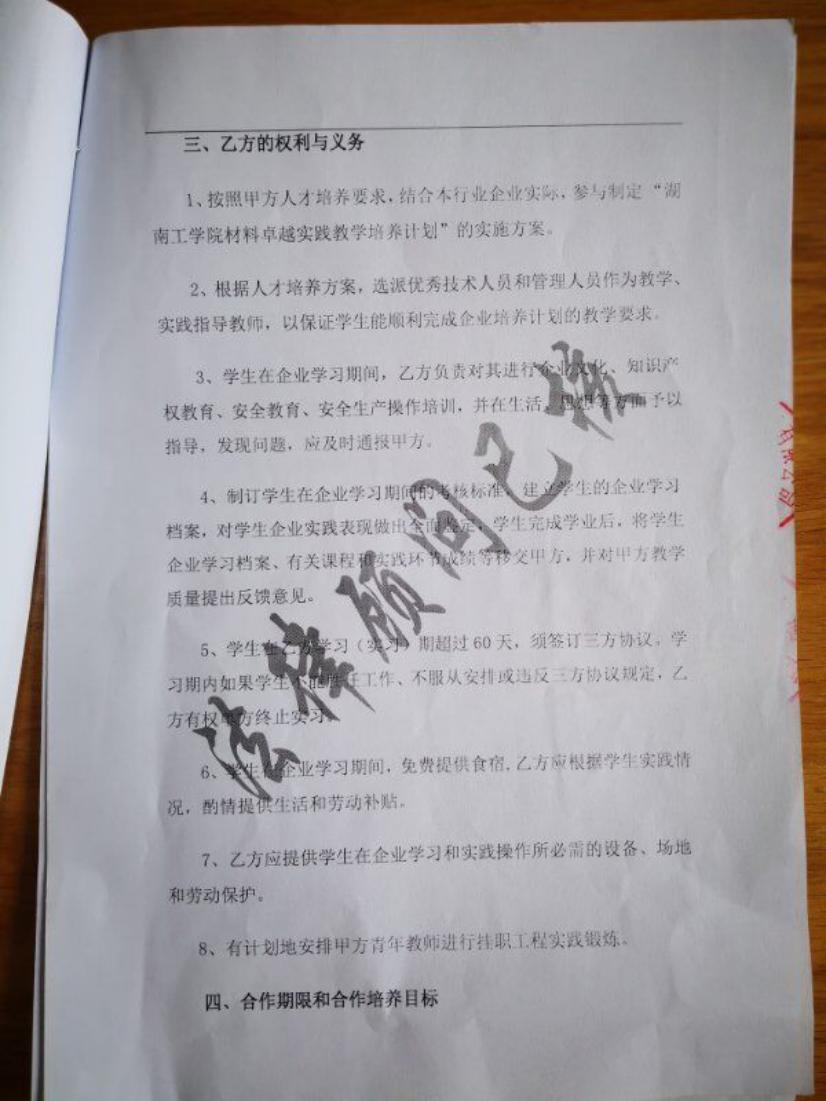 三、乙方的权利与义务
1、按照甲方人才培养要求,结合本行业企业实际,参与制定“湖
南工学院材料卓越实践教学培养计划”的实施方案。
2、根据人才培养方案,选派优秀技术人员和管理人员作为教学、
实践指导教师,以保证学生能顺利完成企业培养计划的教学要求。
3、学生在企业学习期间,乙方负责对其进行企业文化、知识产
权教育、安全教育、安全生产操作培训,并在生活、思想等方面予以
指导,发现问题,应及时通报甲方。
4、制订学生在企业学习期间的考核标准,建立学生的企业学习
档案,对学生企业实践表现做出全面鉴定,学生完成学业后,将学生
企业学习档案、有关课程和实践环节成绩等移交甲方,并对甲方教学
质量提出反馈意见。
5、学生在乙方学习(实习)期超过60天,须签订三方协议。学
习期内如果学生不能胜任工作、不服从安排或违反三方协议规定,乙
方有权单方终止实习。
6、学生在企业学习期间,免费提供食宿,乙方应根据学生实践情
况,酌情提供生活和劳动补贴。
7、乙方应提供学生在企业学习和实践操作所必需的设备、场地
和劳动保护。
8、有计划地安排甲方青年教师进行挂职工程实践锻炼。
四、合作期限和合作培养目标
法律顾问已核